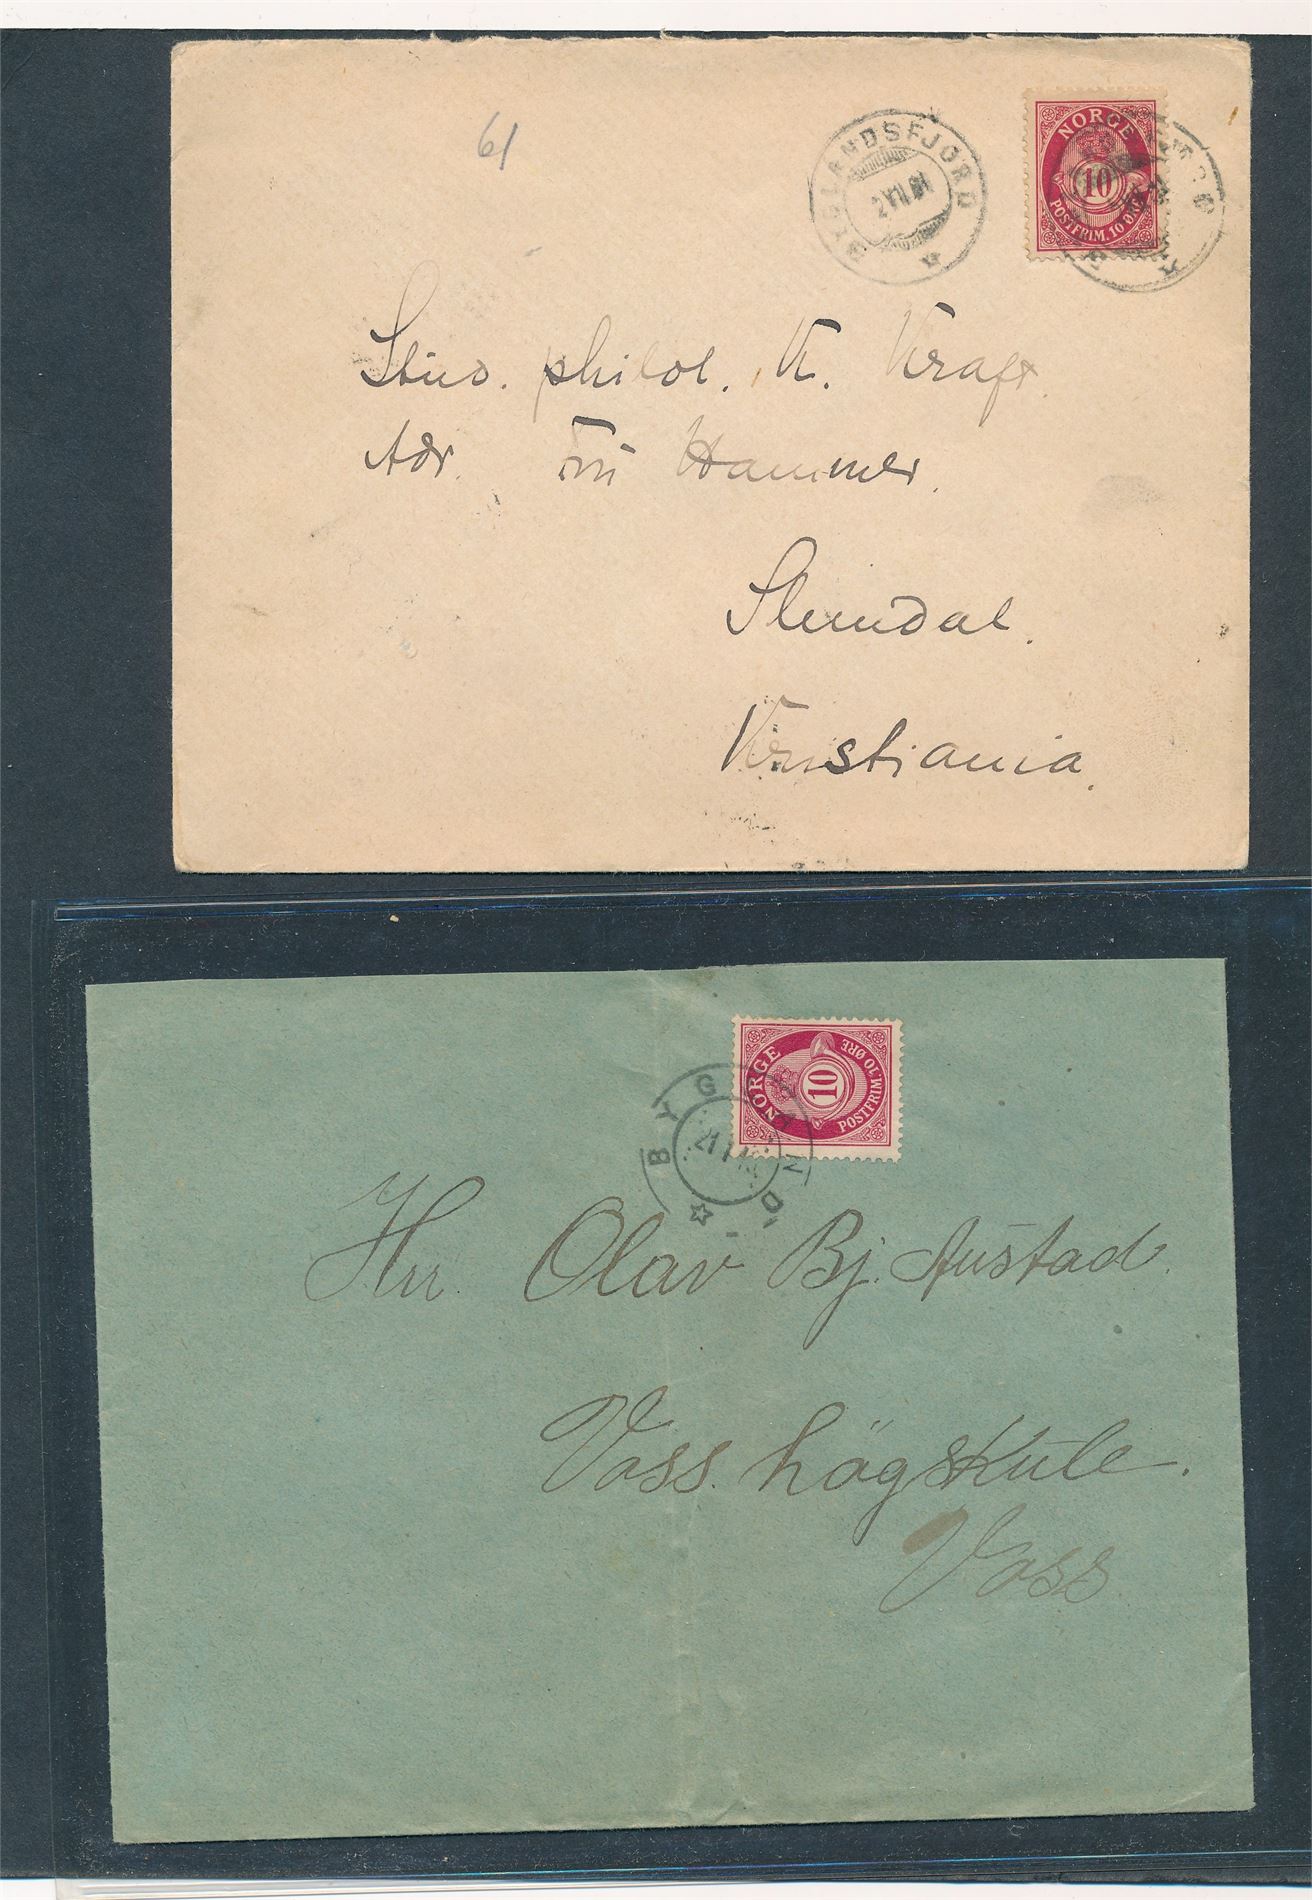 61
BYGLANDSFJORD
2 VII 01
NORGE
10
POSTFRIM. 10 ØRE
Stud. philol. K. Kraft.
Adr. Fru Hammer.
Slemdal.
Kristiania.
NORGE
10
POSTFRIM. 10 ØRE
BYGLAND
Hr. Olav Bj. Austad.
Voss. högskule.
Voss.